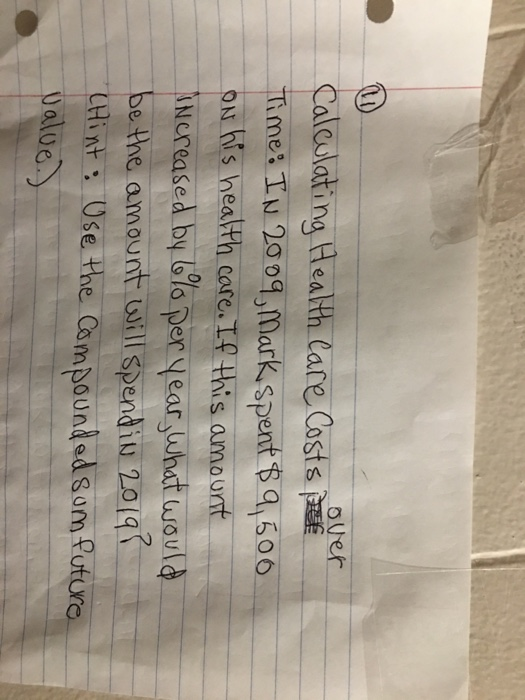 11
Calculating Health Care Costs over
Time: IN 2009, Mark, spent $9,500
on his health care. If this amount
increased by 6% per year, what would
be the amount will spend in 2019?
(Hint: Use the Compounded sum future
value.)